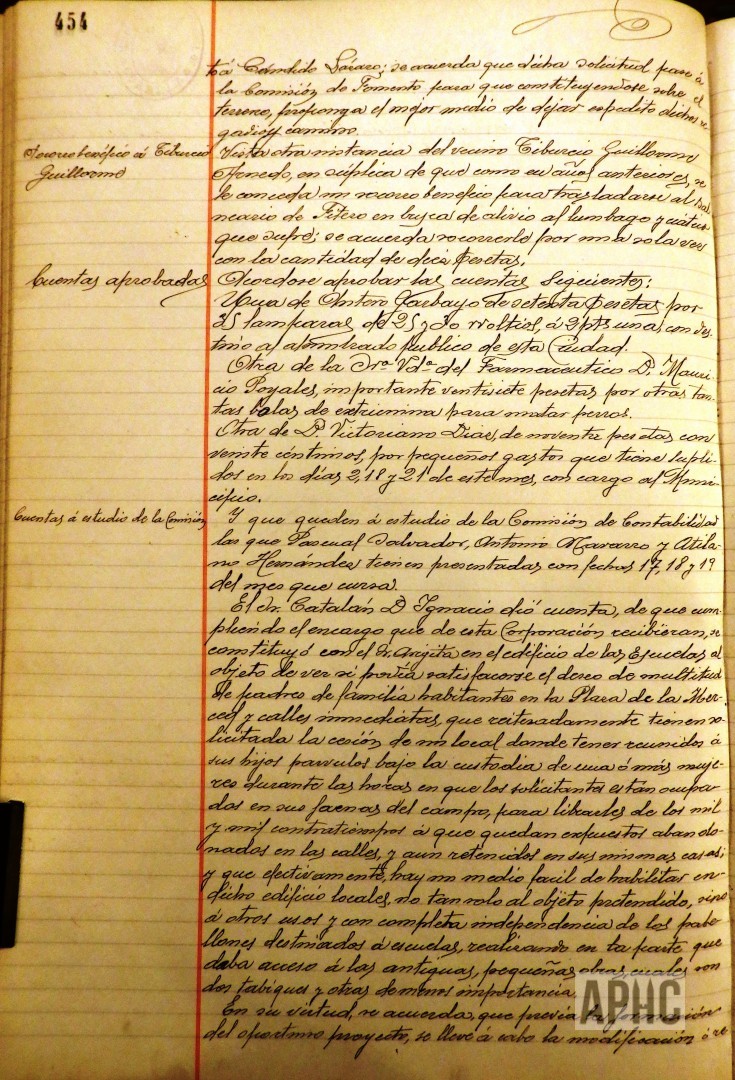 454
tá Cándido Sáinz; se acuerda que dicha solicitud pase á
la Comisión de Fomento para que constituyendose sobre el
terreno, proponga el mejor medio de dejar expedito dichos re-
gadío y camino.
Socorro benéfico á Tiburcio
Guillorme
Vista otra instancia del vecino Tiburcio Guillorme
en súplica de que como en años anteriores, se
le conceda un socorro benefico para trasladarse al bal-
neario de Fitero en busca de alivio al lumbago y ciática
que sufre; se acuerda socorrerle por una sola vez
con la cantidad de diez pesetas.
Cuentas aprobadas
Acordose aprobar las cuentas siguientes:
Una de Antero Garbayo de setenta pesetas por
35 lamparas de 25 y 30 woltios, á 2 pts una, con des-
tino al alumbrado público de esta Ciudad.
Otra de la Sra. Vda. del Farmaceutico D. Mauri-
cio Poyales, importante veintisiete pesetas por otras tan-
tas bolas de extricnina para matar perros.
Otra de D. Victoriano Diaz, de noventa pesetas con
veinte centimos, por pequeños gastos que tiene supli-
dos en los días 2, 18 y 21 de este mes, con cargo al Muni-
cipio.
Cuentas á estudio de la Comisión
Y que queden á estudio de la Comisión de Contabilidad
las que Pascual Salvador, Antonio Navarro y Atila-
no Hernández tienen presentadas con fechas 17, 18 y 19
del mes que cursa.
El Sr. Catalán D. Ignacio dió cuenta, de que cum-
pliendo el encargo que de esta Corporación recibieran, se
constituyó con el Sr. Argita en el edificio de las Escuelas al
objeto de ver si podía satisfacerse el deseo de multitud
de padres de familia habitantes en la Plaza de la Mer-
ced y calles inmediatas, que reiteradamente tienen so-
licitada la cesión de un local donde tener reunidos á
sus hijos parvulos bajo la custodia de una ó más muje-
res durante las horas en que los solicitantes estan ocupa-
dos en sus faenas del campo, para librarles de los mil
y mil contratiempos á que quedan expuestos abando-
nados en las calles, y aun retenidos en sus mismas casas;
y que efectivamente, hay un medio facil de habilitar en
dicho edificio locales, no tan solo al objeto pretendido, sino
á otros usos y con completa independencia de los pabe-
llones destinados á escuelas, realizando en la parte que
daba acceso á las antiguas, pequeñas obras cuales son
dos tabiques y otras de menos importancia.
En su virtud, se acuerda, que previa la formación
del oportuno proyecto, se lleve á cabo la modificación ó re
APHC